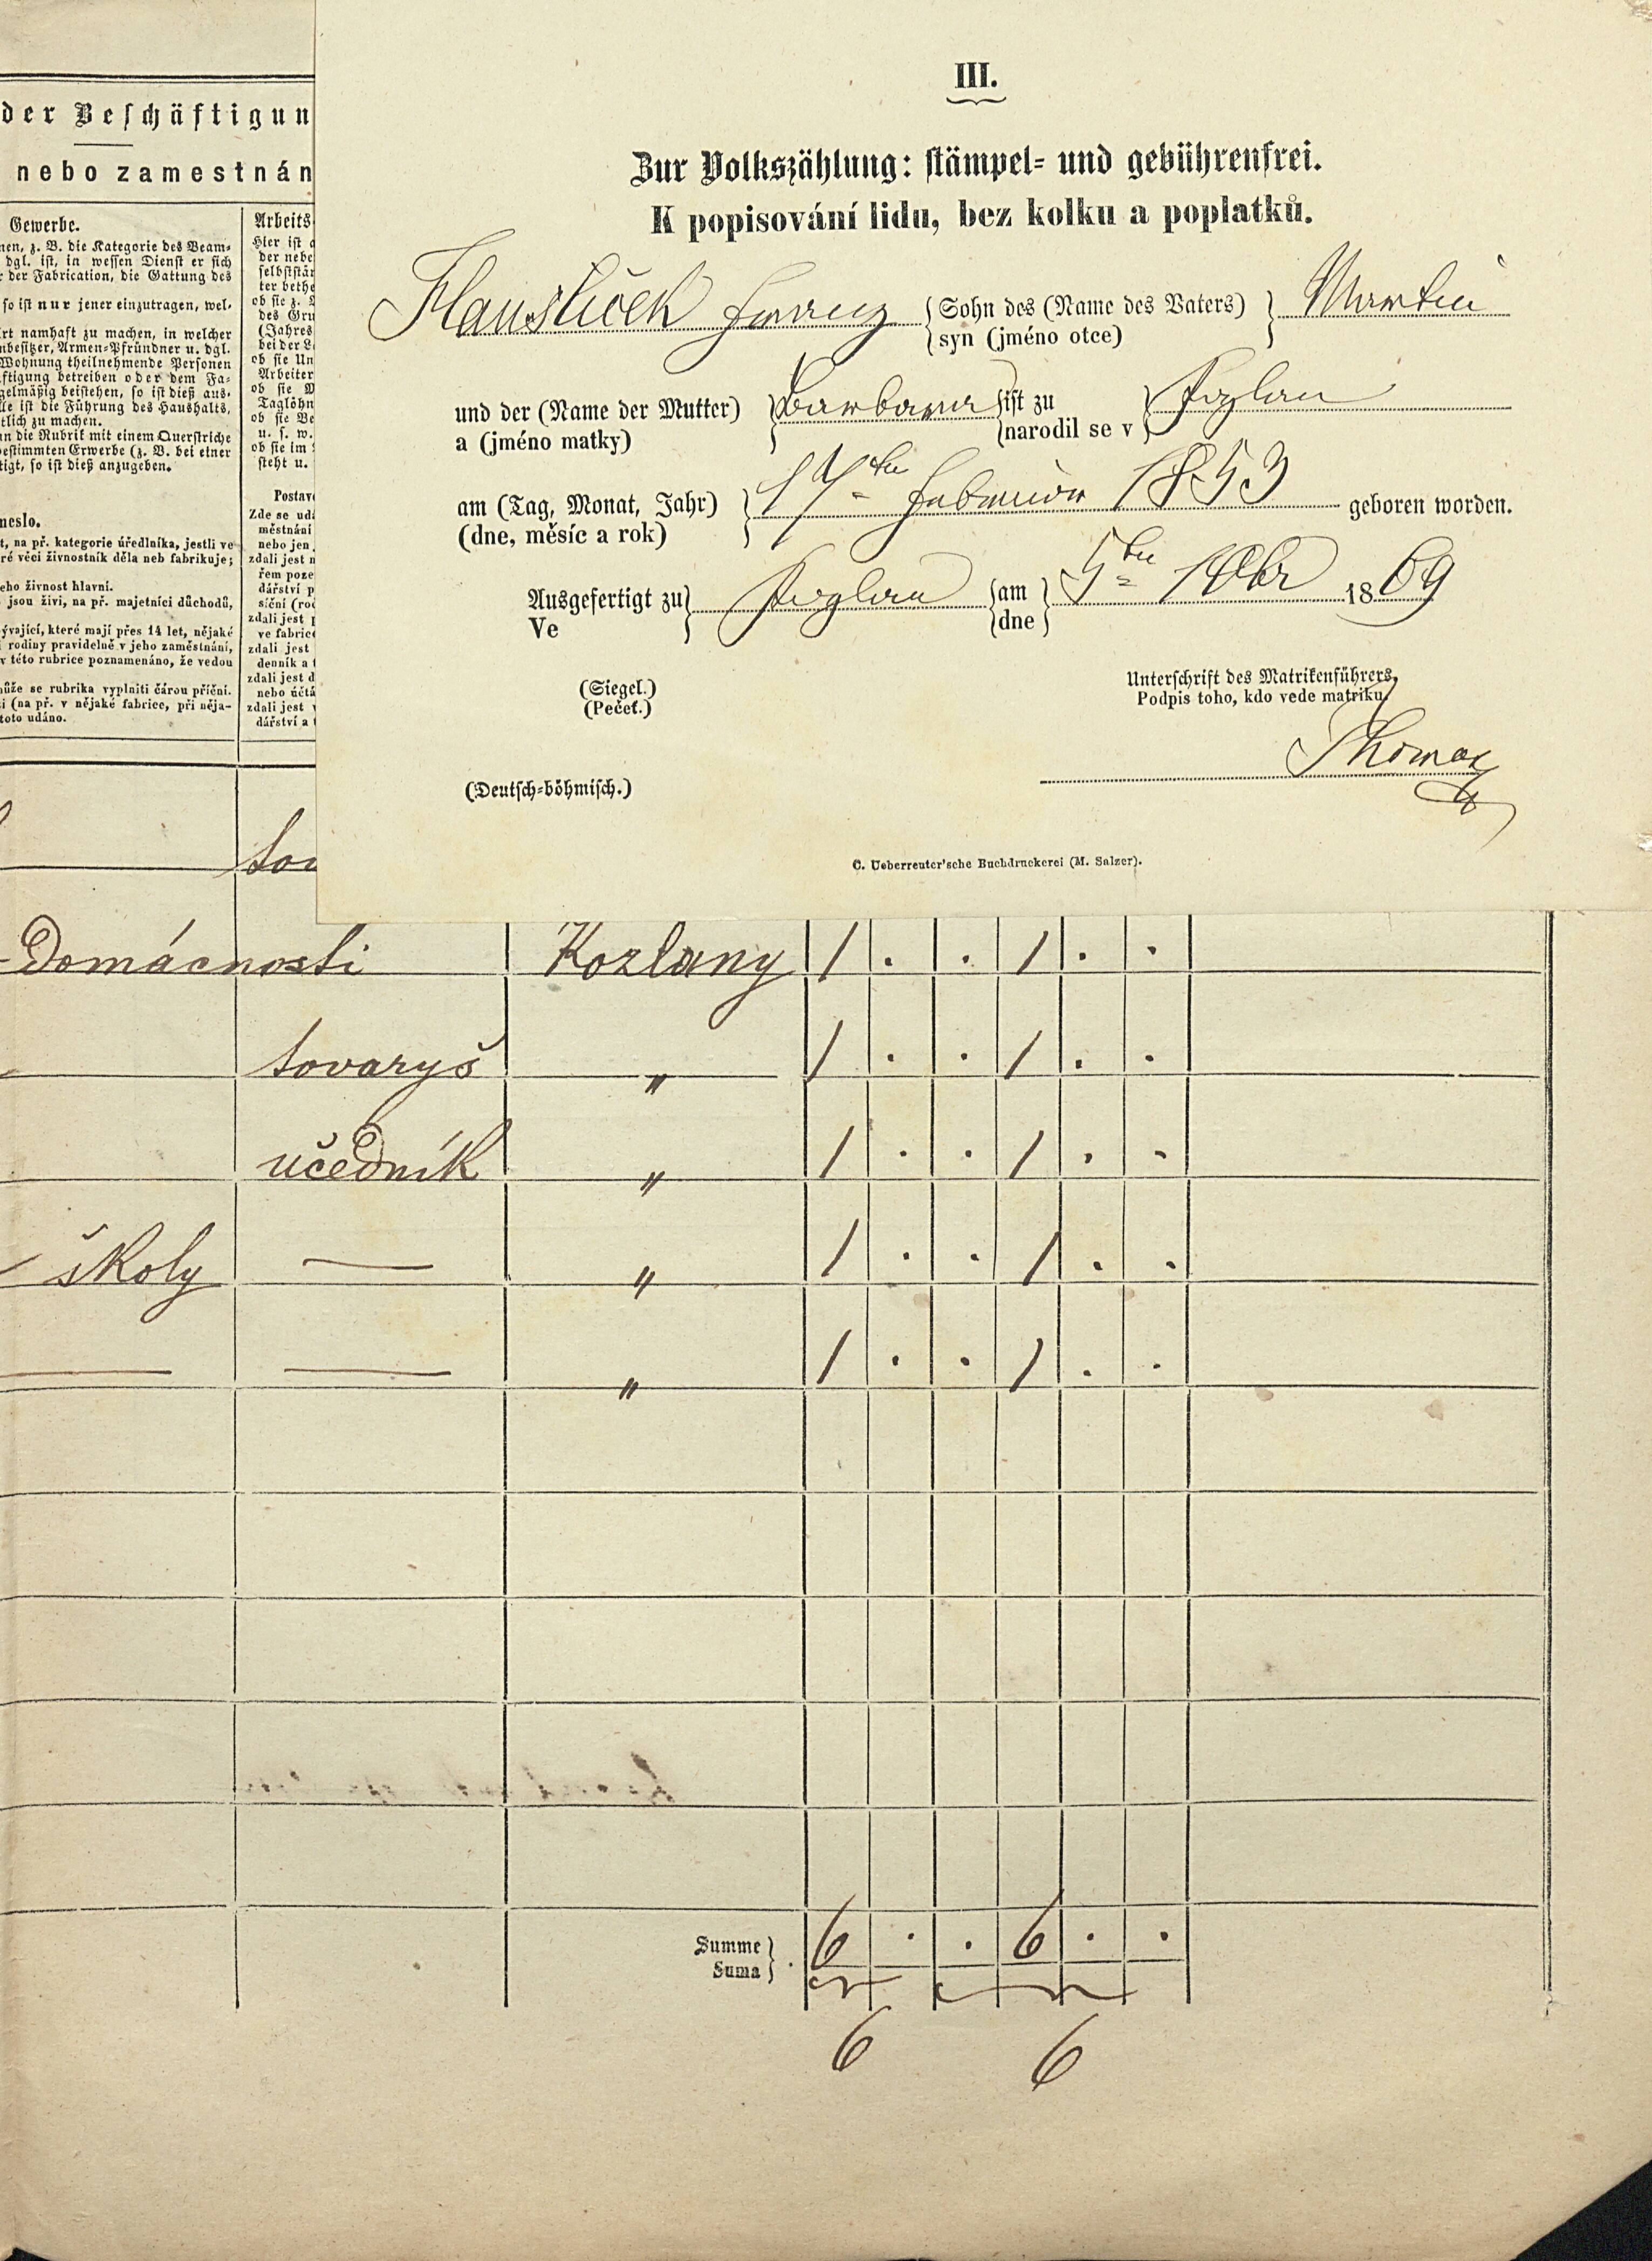 III.
Zur Volkszählung: stämpel- und gebührenfrei.
K popisování lidu, bez kolku a poplatků.
Franz { Sohn des (Name des Vaters) } Martin
syn (jméno otce)
und der (Name der Mutter) } Barbara { ist zu } Poglau
a (jméno matky) narodil se v
am (Tag, Monat, Jahr) } 17ten Februar 1853 geboren worden.
(dne, měsíc a rok)
Ausgefertigt zu } Poglau { am } 5ten 10br 1869
Ve dne
(Siegel.) Unterschrift des Matrikenführers,
(Pečeť.) Podpis toho, kdo vede matriku.
Thomas
(Deutsch-böhmisch.)
C. Ueberreuter'sche Buchdruckerei (M. Salzer).
der Beschäftigun
nebo zamestnán
Gewerbe.
nen, z. B. die Kategorie des Beam-
dgl. ist, in wessen Dienst er sich
der Fabrication, die Gattung des
so ist nur jener einzutragen, wel-
rt namhaft zu machen, in welcher
nbesitzer, Armen-Pfründner u. dgl.
Wohnung theilnehmende Personen
ftigung betreiben oder dem Fa-
gelmäßig beistehen, so ist dieß aus-
lle ist die Führung des Haushalts,
tlich zu machen.
nn die Rubrik mit einem Querstriche
bestimmten Erwerbe (z. B. bei einer
tigt, so ist dieß anzugeben.
neslo.
t, na př. kategorie úředlníka, jestli ve
ré věci živnostník děla neb fabrikuje;
eho živnost hlavní.
jsou živi, na př. majetníci důchodů,
ývající, které mají přes 14 let, nějaké
rodiny pravidelně v jeho zaměstnání,
v této rubrice poznamenáno, že vedou
ůže se rubrika vyplniti čárou příční.
i (na př. v nějaké fabrice, při něja-
toto udáno.
Arbeits
Hier ist a
der nebe
selbststän
ter bethe
ob sie z. B
des Gru
(Jahres
bei der L
ob sie Un
Arbeiter
ob sie M
Taglöhn
ob sie Be
u. s. w.
ob sie im
steht u.
Postav
Zde se udá
městnání
nebo jen
zdali jest n
řem poze
dářství p
síční (roč
zdali jest
ve fabrice
zdali jest
denník a
zdali jest d
nebo účtá
zdali jest v
dářství a
tov
Domácnosti Kozlany 1 . . 1 . .
tovaryš " 1 . . 1 . .
učedník " 1 . . 1 . .
školy — " 1 . . 1 . .
— — " 1 . . 1 . .
Summe } 6 . . 6 . .
Suma
6 6